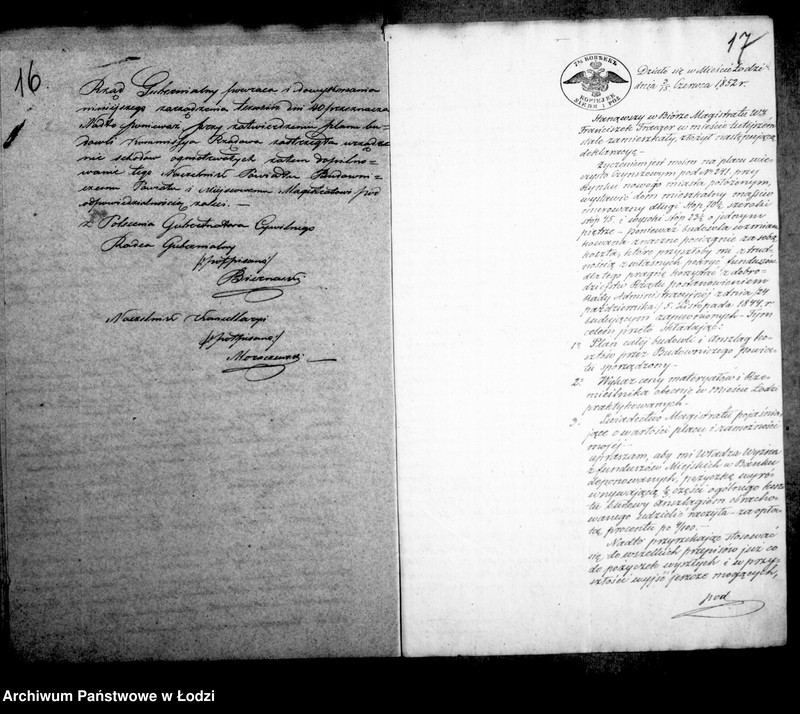 16
Rząd Gubernialny powraca i do wykonania
niniejszego zarządzenia termin dni 40 przeznacza
Nadto ponieważ przy zatwierdzeniu planu bu-
dowli Kommissya Rządowa zastrzegła urządze
nie schodów ogniotrwałych zatem dopilno-
wanie tego Naczelnikowi Powiatu Budowni-
czemu Powiatu i Miejscowemu Magistratowi pod
odpowiedzialnością zaleca. —
z Polecenia Gubernatora Cywilnego
Radca Gubernialny
/podpisano/
Biernacki
Naczelnik Kancellaryi
/podpisano/
17
7½ КОПѢЕКЪ
KOPIEJEK
SIEDM I PÓŁ
Działo się w Mieście Łodzi
dnia 3/15 Czerwca 1852 r.
Stanąwszy w Biórze Magistratu Wy
Franciszek Traeger w mieście tutejszem
stale zamieszkały, złożył następującą
deklaracyą —
Życzeniem jest moim na placu wie-
czysto czynszowym pod Nº 241. przy
Rynku nowego miasta położonym,
wystawić dom mieszkalny massiw
murowany długi stop 70½ szeroki
stop 45. i wysoki stop 23½ o jednym
piętrze — ponieważ budowla wzmian
kowana znaczne pociągnie za sobą
koszta, które przyszłoby mi z trud-
nością z własnych pokryć funduszów,
dla tego pragnę korzystać z dobro-
dziejstw Rządu postanowieniem
Rady Administracyjnej z dnia /24
października/ 5 Listopada 1844. r
budującym zapewnionych — Tym
celem przeto składając:
1. Plan całej budowli i anszlag ko-
sztów przez Budowniczego powia-
tu sporządzony —
2. Wykaz ceny materyałów i Rze-
mieślnika obecnie w mieście Łodzi
praktykowanych —
3. Świadectwo Magistratu pojaśnia
jące o wartości placu i zamożności
mojej —
upraszam, aby mi Władza Wyższa
z funduszów Miejskich w Banku
deponowanych, pożyczkę wyró
wnywającą ⅔ części ogólnego kosz
tu budowy anszlagiem obracho-
wanego udzielić raczyła — za opła-
tą procentu po 4/100 —
Nadto przyrzekając stosować
się do wszelkich przepisów już co
do pożyczek wyszłych i w przy-
szłości wyjść jeszcze mogących,
pod
Archiwum Państwowe w Łodzi